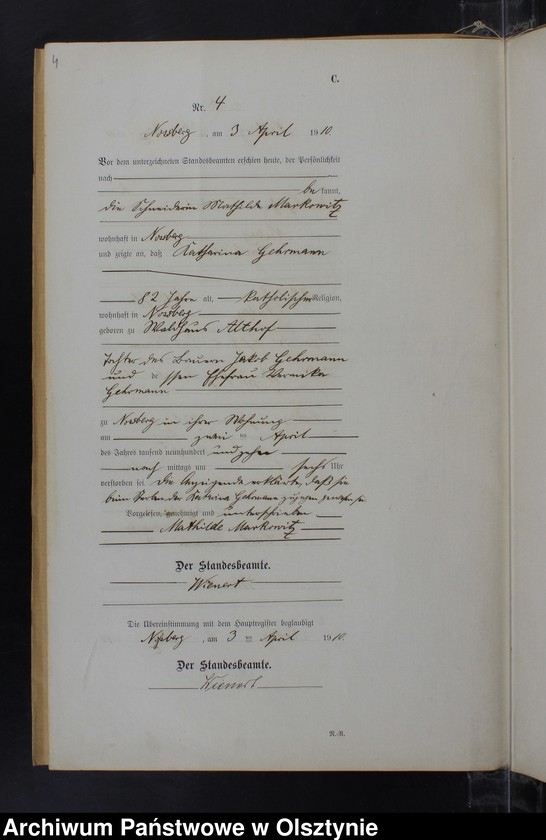 4
C.
Nr. 4
Nossberg, am 3 April 1910.
Vor dem unterzeichneten Standesbeamten erschien heute, der Persönlichkeit
nach
be kannt,
die Schneiderin Mathilde Markowitz
wohnhaft in Nossberg
und zeigte an, daß Katharina Gehrmann
82 Jahre alt, katholischer Religion,
wohnhaft in Nossberg
geboren zu Waldhaus Althof
Tochter des Bauern Jakob Gehrmann
und dessen Ehefrau
Gehrmann
zu Nossberg in ihrer Wohnung
am zwei ten April
des Jahres tausend neunhundert und zehn
nach mittags um sechs Uhr
verstorben sei. Die Anzeigende erklärte, daß sie
beim Sterben der Gehrmann zugegen gewesen sei
Vorgelesen, genehmigt und unterschrieben
Mathilde Markowitz
Der Standesbeamte.
Wienert
Die Übereinstimmung mit dem Hauptregister beglaubigt
Nossberg, am 3 ten April 1910.
Der Standesbeamte.
Wienert
N.-R.
Archiwum Państwowe w Olsztynie